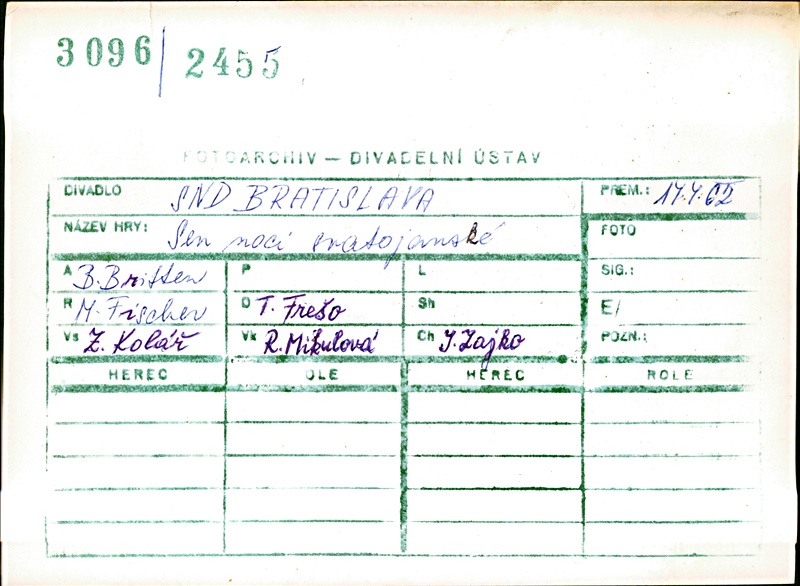 3096 2455
FOTOARCHIV — DIVADELNÍ ÚSTAV
DIVADLO SND BRATISLAVA PREM.: 14.4.62
NÁZEV HRY: Sen noci svatojanské FOTO
A B. Britten P L SIG.:
R M. Fischer D T. Frešo Sh E/
Vs Z. Kolář Vk R. Mikulová Ch J. Zajko POZN.:
HEREC OLE HEREC ROLE